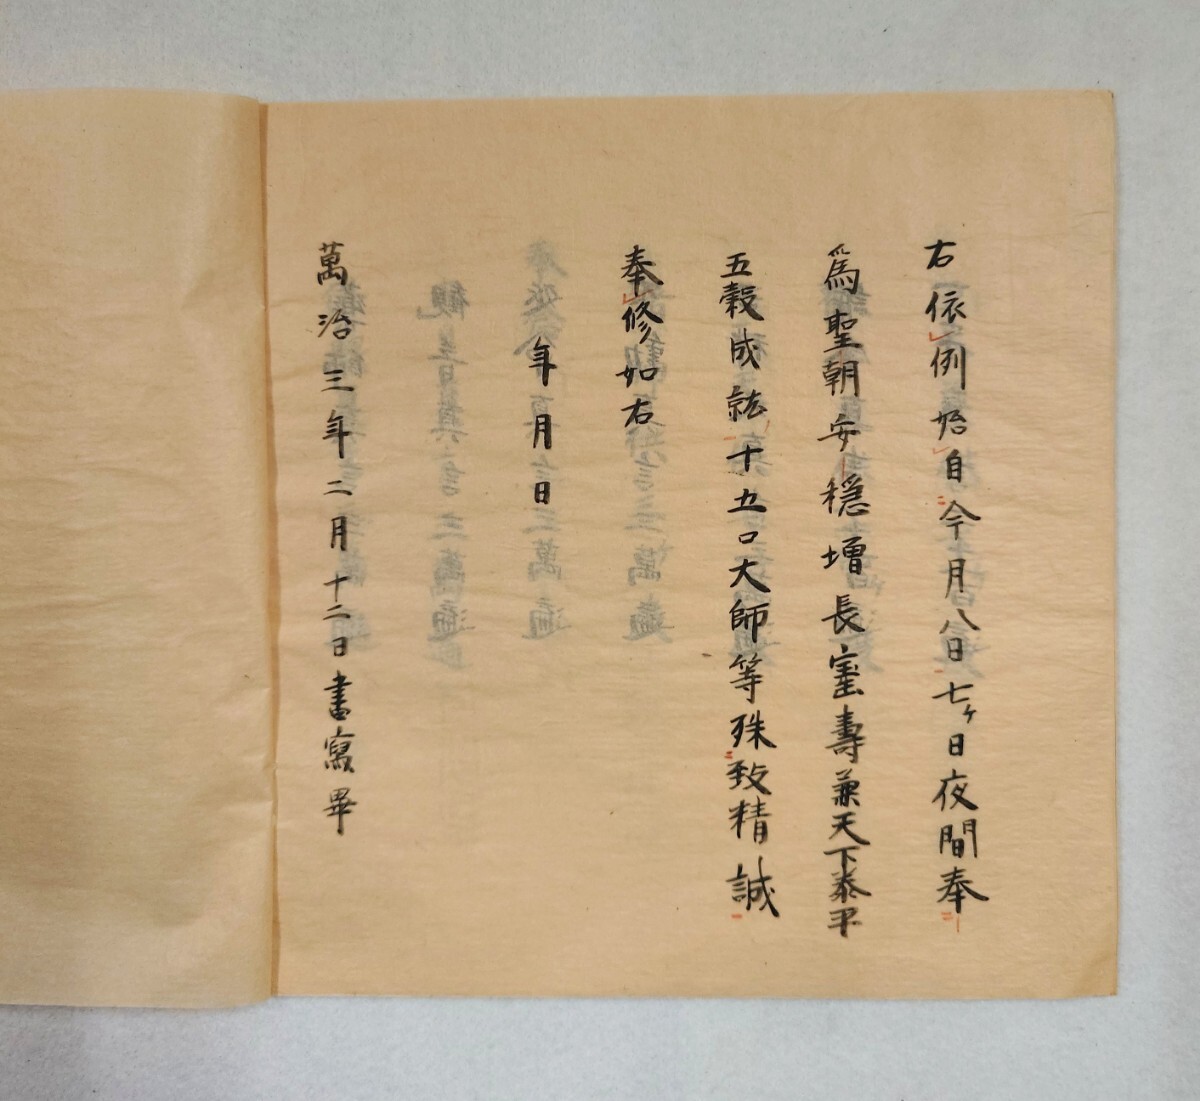 右依例始自今月八日七ヶ日夜間奉
為聖朝安穏増長宝壽兼天下泰平
五穀成就十五口大師等殊致精誠
奉修如右
年月日
萬治三年二月十二日書寫畢